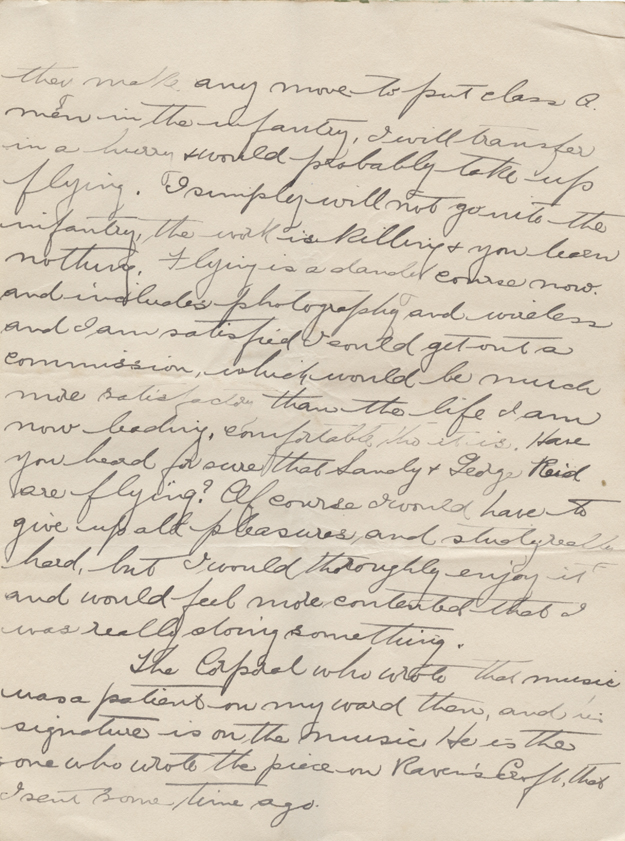 they make any move to put class A.
men in the infantry, I will transfer
in a hurry & would probably take up
flying. I simply will not go into the
infantry, the work is killing & you learn
nothing. Flying is a dandy course now.
and includes photography and wireless
and I am satisfied I could get out a
commission, which would be much
more satisfactory than the life I am
now leading, comfortable tho it is. Have
you heard for sure that Sandy & George Reid
are flying? Of course I would have to
give up all pleasures, and study really
hard, but I would thoroughly enjoy it
and would feel more contented that I
was really doing something.
The Corporal who wrote that music
was a patient on my ward then, and his
signature is on the music He is the
one who wrote the piece on Raven's Croft, that
I sent some time ago.